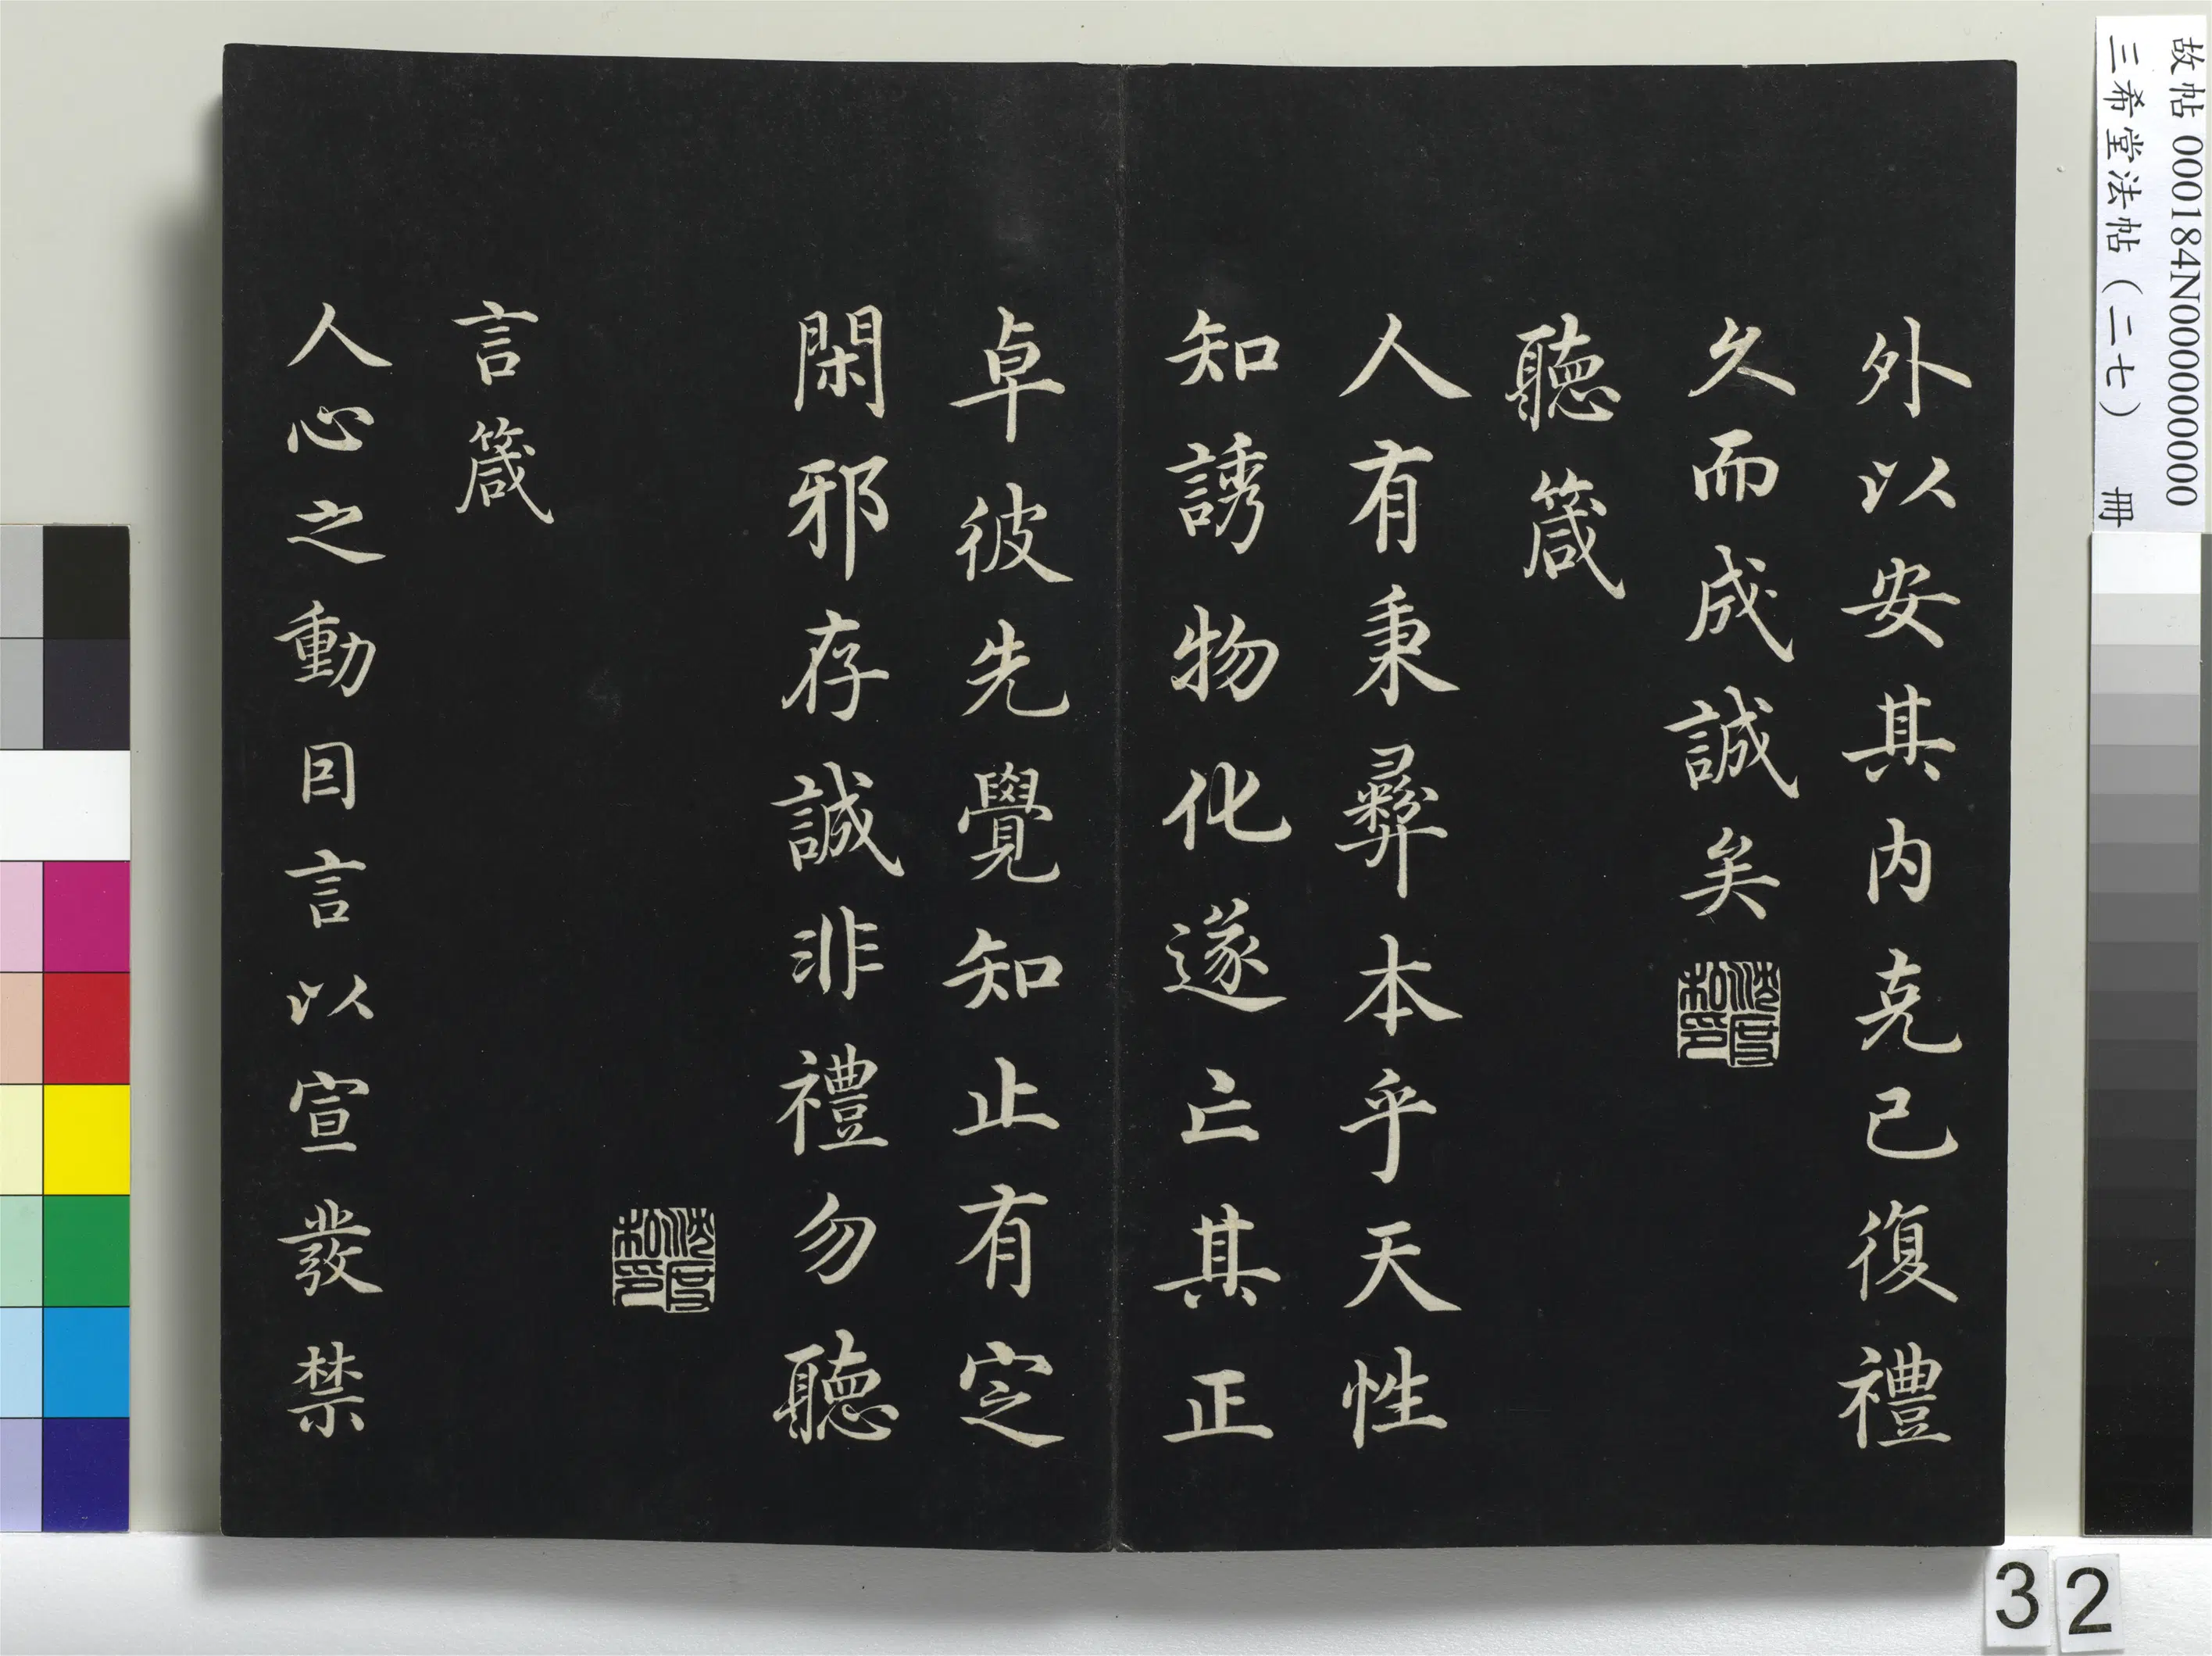 故帖 000184N000000000
三希堂法帖（二七） 冊
外以安其內克己復禮
久而成誠矣
沈度私印
聽箴
人有秉彝本乎天性
知誘物化遂亡其正
卓彼先覺知止有定
閑邪存誠非禮勿聽
沈度私印
言箴
人心之動囙言以宣發禁
32